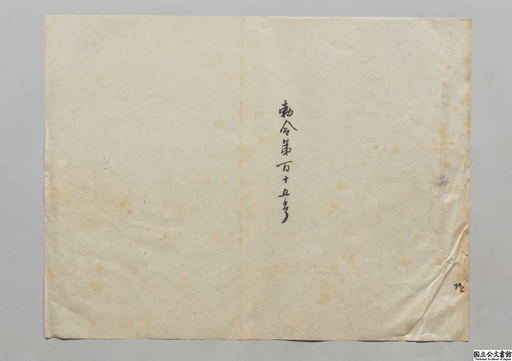 勅令第百十五号
国立公文書館
National Archives of Japan